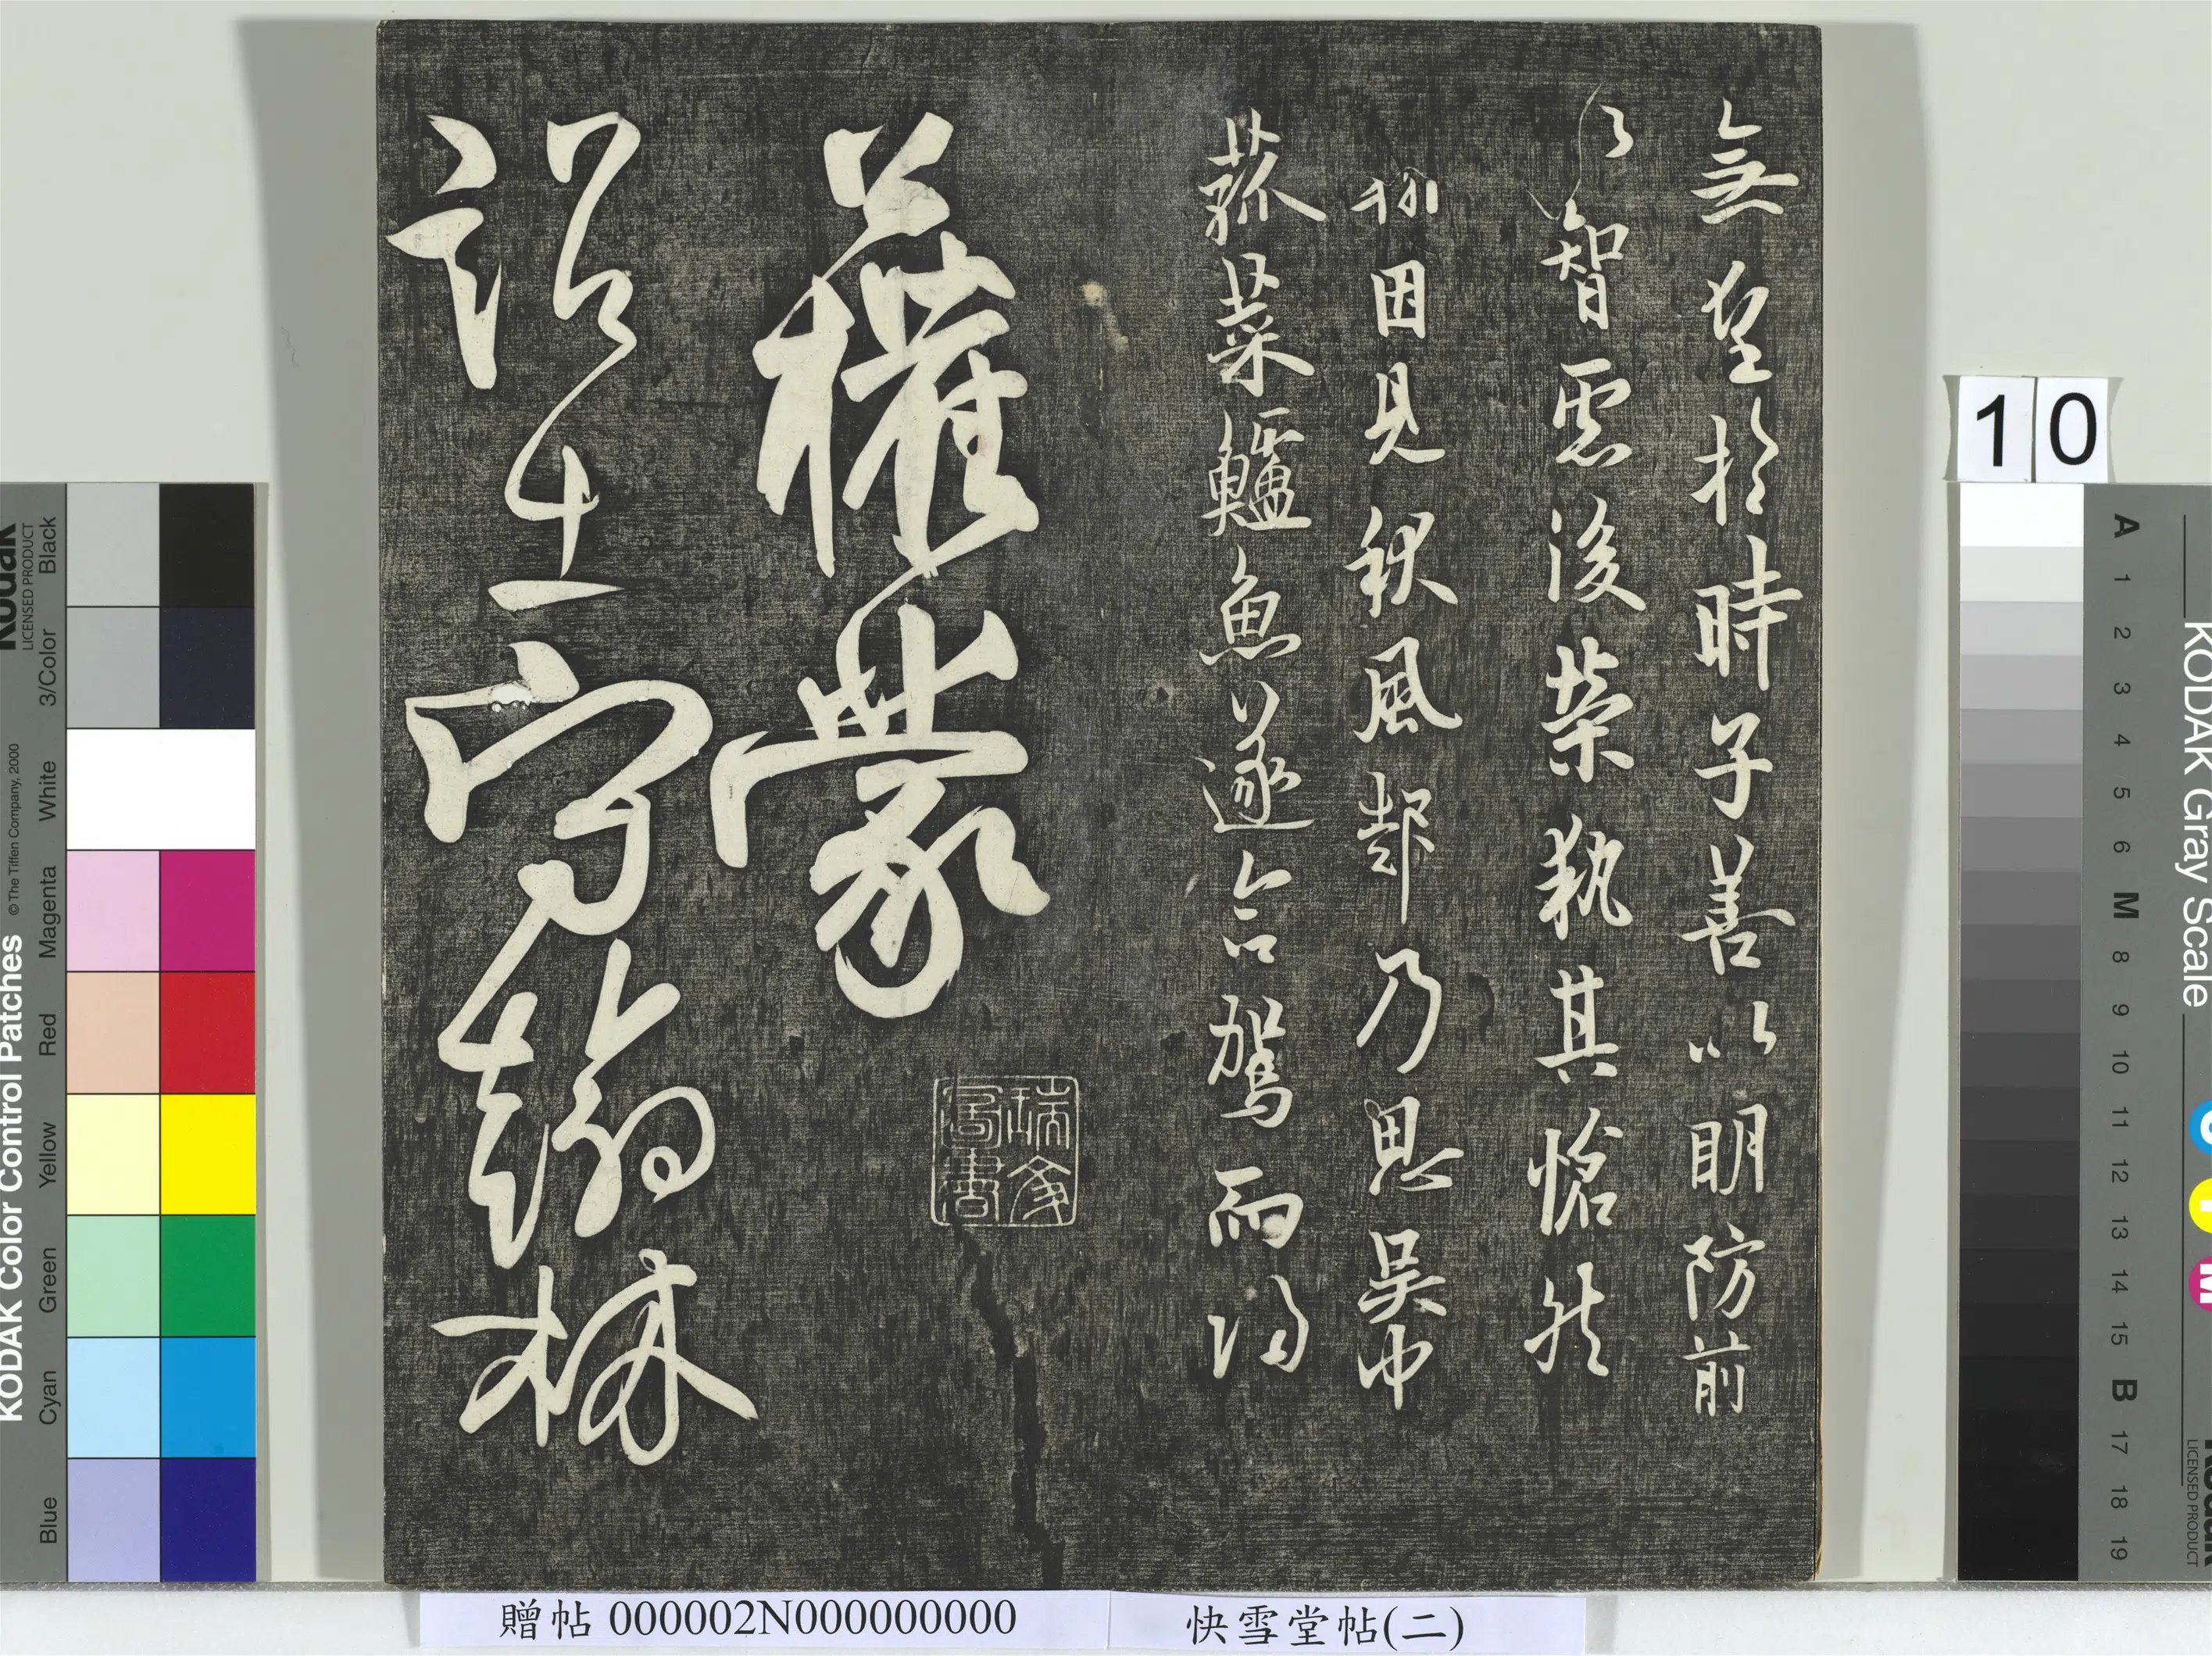 無望於時子善以明防前
以智慮後榮執其愴然
翰因見秋風起乃思吳中
菰菜鱸魚遂命駕而歸
公權蒙
詔出守翰林
瑞文圖書
10
贈帖 000002N000000000
快雪堂帖(二)
KODAK Color Control Patches
© The Tiffen Company, 2000
Kodak
LICENSED PRODUCT
Blue Cyan Green Yellow Red Magenta White 3/Color Black
KODAK Gray Scale
A 1 2 3 4 5 6 M 8 9 10 11 12 13 14 15 B 17 18 19
C Y M
Kodak
LICENSED PRODUCT